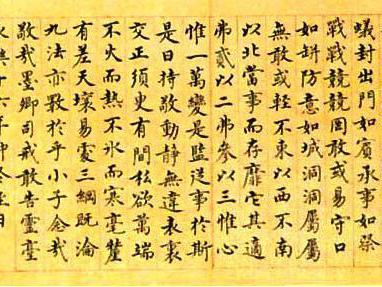 蟻封出門如賓承事如祭
戰戰兢兢罔敢或易守口
如缾防意如城洞洞屬屬
無敢或輕不東以西不南
以北當事而存靡它其適
弗貳以二弗參以三惟心
惟一萬變是監從事於斯
是曰持敬動靜無違表裏
交正須臾有間私欲萬端
不火而熱不氷而寒毫釐
有差天壤易處三綱既淪
九法亦斁於乎小子念哉
敬哉墨卿司戒敢告靈臺
永樂十六年仲冬至日